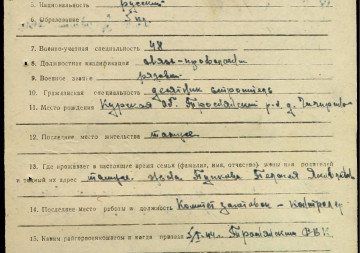 5. Национальность русский
6. Образование 5 кл.
7. Военно-учетная специальность 48
8. Должностная квалификация связь-проволочн
9. Военное звание рядовой
10. Гражданская специальность десятник строитель
11. Место рождения Курская об. Троснянский р-н д.
12. Последнее место жительства там же
13. Где проживает в настоящее время семья (фамилия, имя, отчество) жены или родителей
и точный их адрес там же. Жена Пелагея Яковлевна
14. Последнее место работы и должность Комит заготовок - контролер
15. Каким райгорвоенкоматом и когда призван 44 г. Троснянским РВК